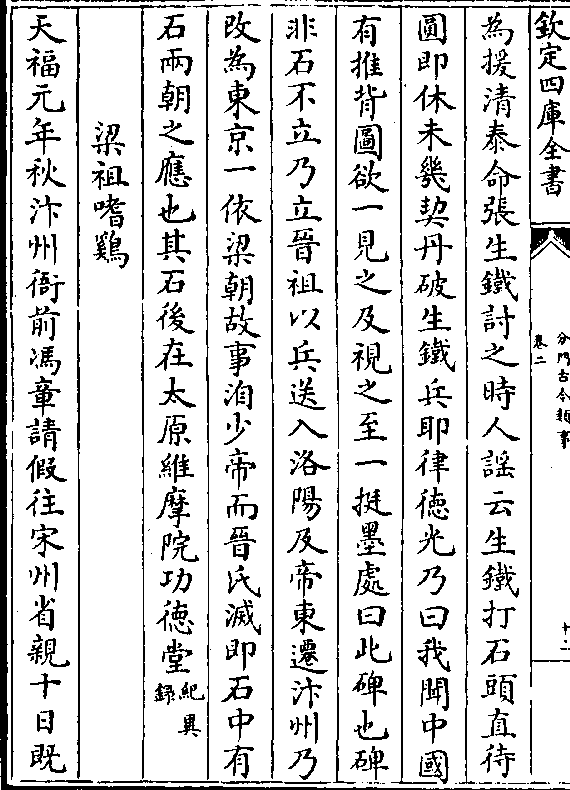 欽定四庫全書
分門古今類事
卷二
十二
為援清泰命張生鐵討之時人謡云生鐵打石頭直待
圓即休未幾契丹破生鐵兵耶律徳光乃曰我聞中國
有推背圖欲一見之及視之至一挺墨處曰此碑也碑
非石不立乃立晉祖以兵送入洛陽及帝東遷汴州乃
改為東京一依梁朝故事洎少帝而晉氏滅即石中有
石兩朝之應也其石後在太原維摩院功徳堂紀異録
梁祖嗜鷄
天福元年秋汴州衙前馮章請假往宋州省親十日既